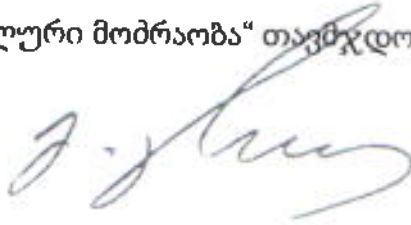 ლური მოძრაობა“ თავმჯდო